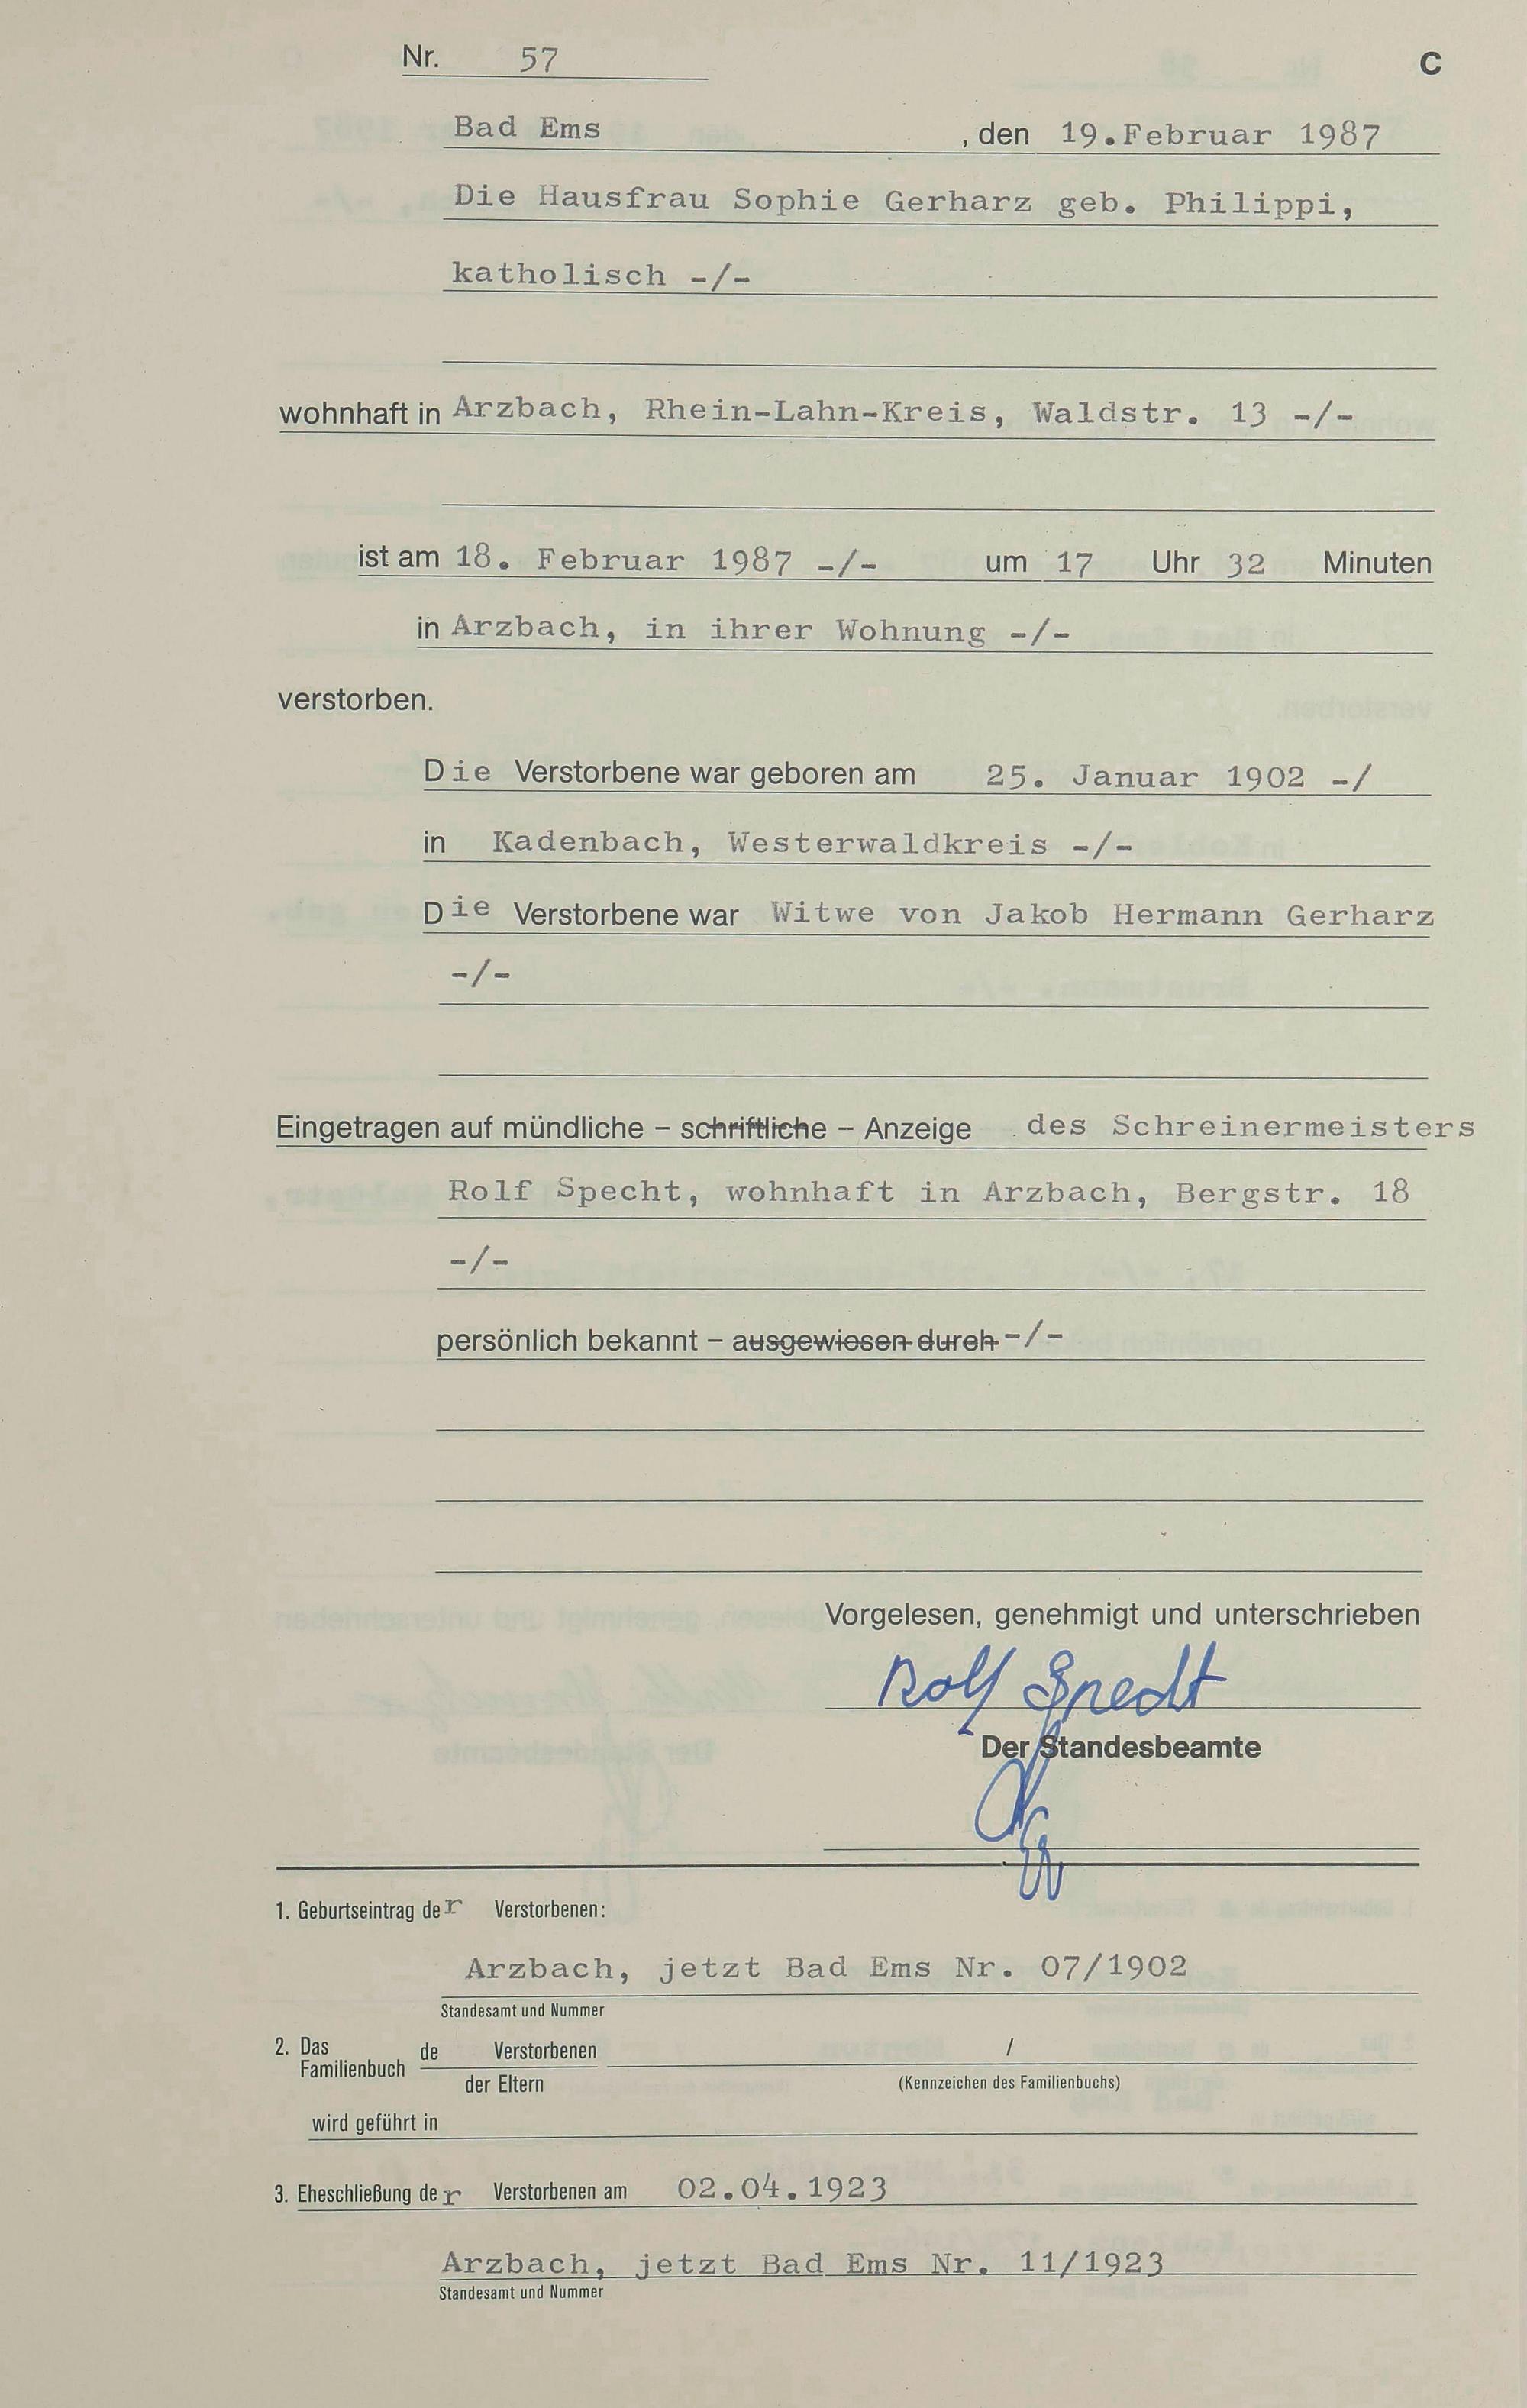 Nr. 57 C
Bad Ems , den 19.Februar 1987
Die Hausfrau Sophie Gerharz geb. Philippi,
katholisch -/-
wohnhaft in Arzbach, Rhein-Lahn-Kreis, Waldstr. 13 -/-
ist am 18. Februar 1987 -/- um 17 Uhr 32 Minuten
in Arzbach, in ihrer Wohnung -/-
verstorben.
Die Verstorbene war geboren am 25. Januar 1902 -/
in Kadenbach, Westerwaldkreis -/-
Die Verstorbene war Witwe von Jakob Hermann Gerharz
-/-
Eingetragen auf mündliche – schriftliche – Anzeige des Schreinermeisters
Rolf Specht, wohnhaft in Arzbach, Bergstr. 18
-/-
persönlich bekannt – ausgewiesen durch -/-
Vorgelesen, genehmigt und unterschrieben
Rolf Specht
Der Standesbeamte
1. Geburtseintrag der Verstorbenen:
Arzbach, jetzt Bad Ems Nr. 07/1902
Standesamt und Nummer
2. Das Familienbuch de Verstorbenen /
der Eltern (Kennzeichen des Familienbuchs)
wird geführt in
3. Eheschließung der Verstorbenen am 02.04.1923
Arzbach, jetzt Bad Ems Nr. 11/1923
Standesamt und Nummer